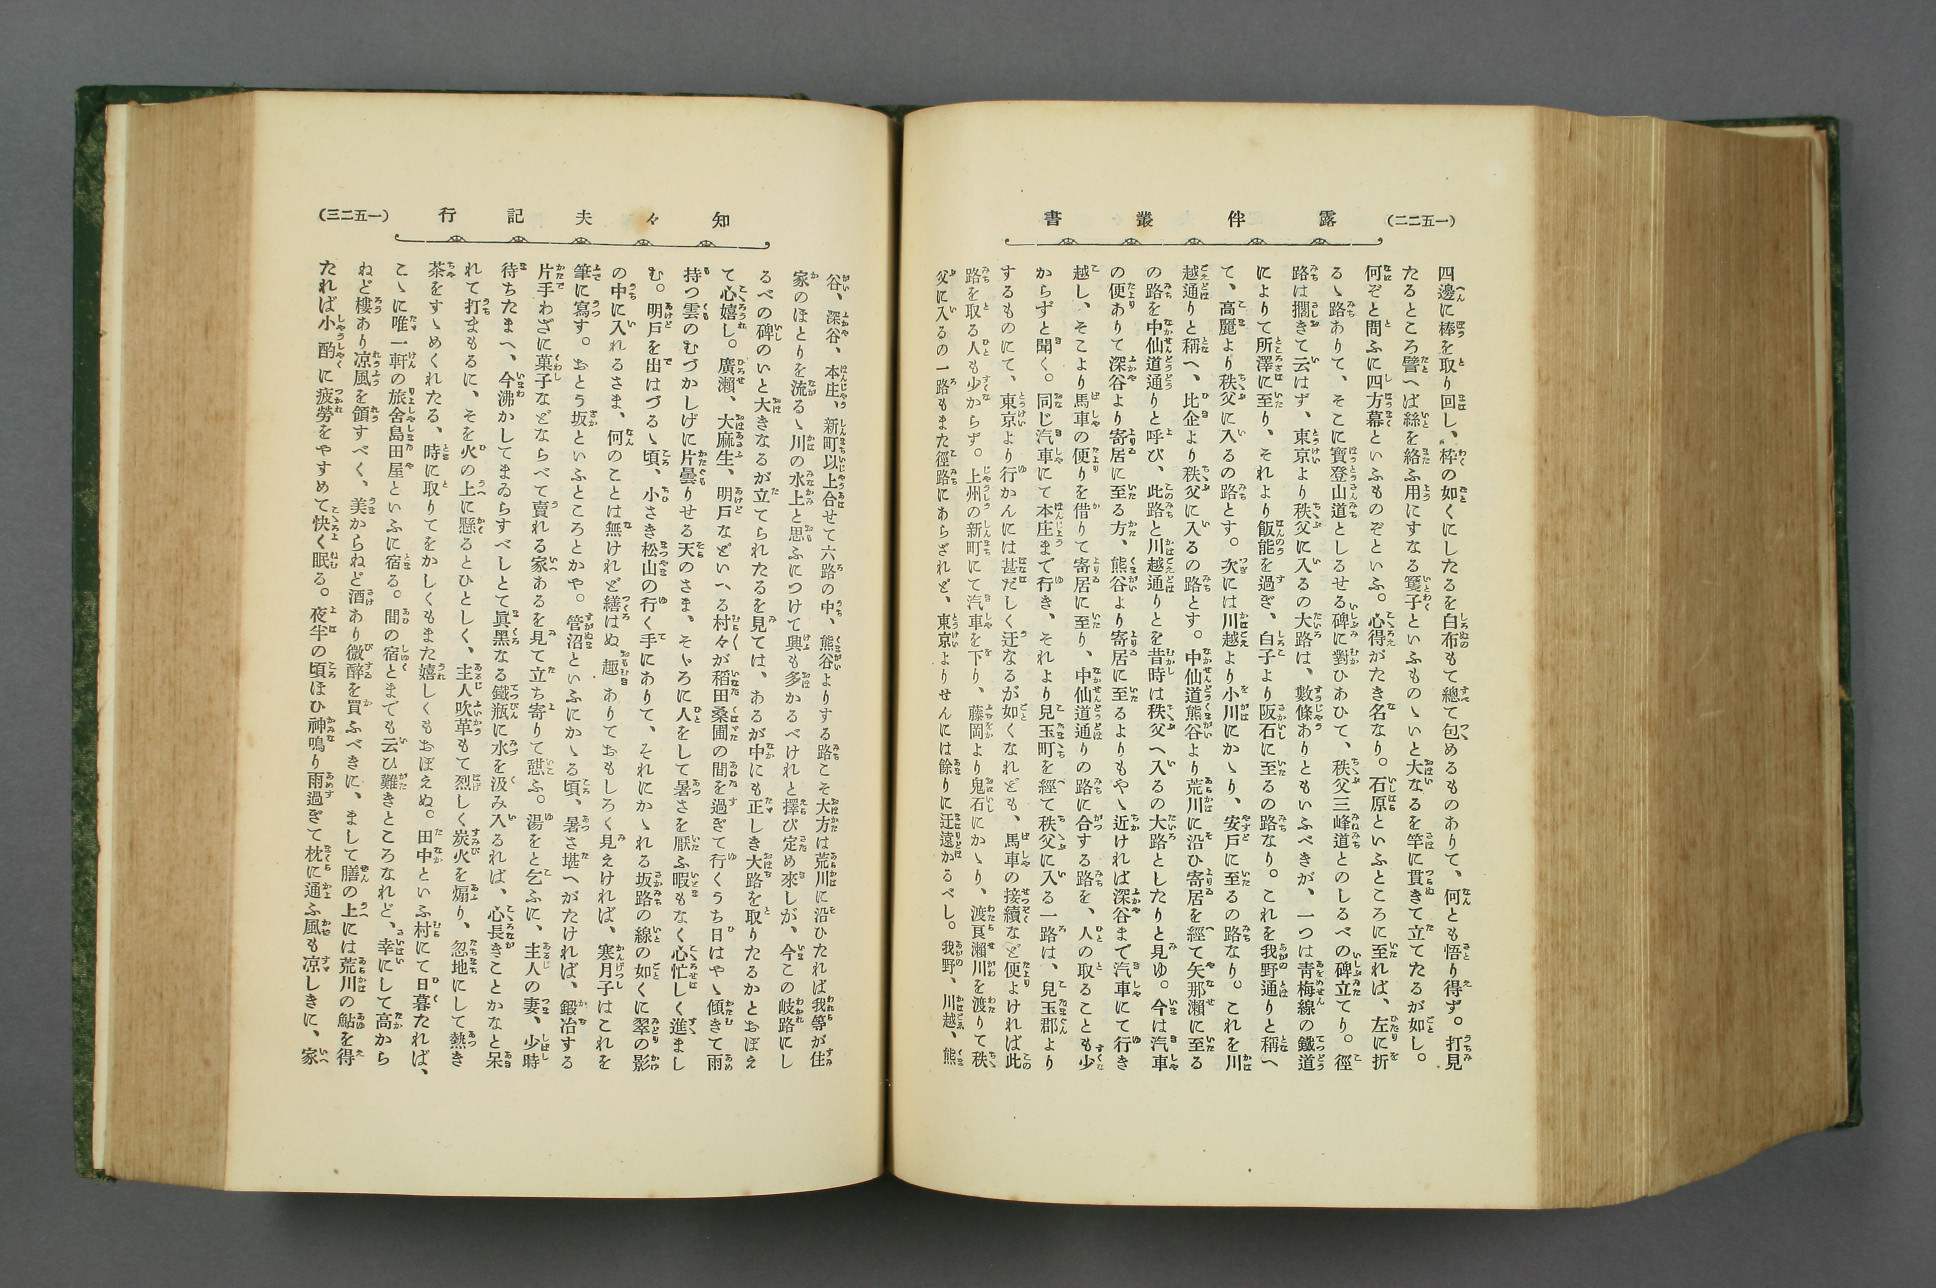 露伴叢書
(一五二二)
四邊に棒を取り回し、枠の如くにしたるを白布もて總て包めるものありて、何とも悟り得ず。打見
たるところ譬へば絲を絡ふ用にすなる籆子といふものゝいと大なるを竿に貫きて立てたるが如し。
何ぞと問ふに四方幕といふものぞといふ。心得がたき名なり。石原といふところに至れば、左に折
るゝ路ありて、そこに寶登山道としるせる碑に對ひあひて、秩父三峰道とのしるべの碑立てり。徑
路は擱きて云はず、東京より秩父に入るの大路は、數條ありともいふべきが、一つは青梅線の鐵道
によりて所澤に至り、それより飯能を過ぎ、白子より阪石に至るの路なり。これを我野通りと稱へ
て、高麗より秩父に入るの路とす。次には川越より小川にかゝり、安戸に至るの路なり。これを川
越通りと稱へ、比企より秩父に入るの路とす。中仙道熊谷より荒川に沿ひ寄居を經て矢那瀬に至る
の路を中仙道通りと呼び、此路と川越通りとを昔時は秩父へ入るの大路としたりと見ゆ。今は汽車
の便ありて深谷より寄居に至る方、熊谷より寄居に至るよりもやゝ近ければ深谷まで汽車にて行き
越し、そこより馬車の便りを借りて寄居に至り、中仙道通りの路に合する路を、人の取ることも少
からずと聞く。同じ汽車にて本庄まで行き、それより兒玉町を經て秩父に入る一路は、兒玉郡より
するものにて、東京より行かんには甚だしく迂なるが如くなれども、馬車の接續など便よければ此
路を取る人も少からず。上州の新町にて汽車を下り、藤岡より鬼石にかゝり、渡良瀬川を渡りて秩
父に入るの一路もまた徑路にあらざれど、東京よりせんには餘りに迂遠かるべし。我野、川越、熊
知々夫記行
(一五二三)
谷、深谷、本庄、新町以上合せて六路の中、熊谷よりする路こそ大方は荒川に沿ひたれば我等が住
家のほとりを流るゝ川の水上と思ふにつけて興も多かるべけれと擇び定め來しが、今この岐路にし
るべの碑のいと大きなるが立てられたるを見ては、あるが中にも正しき大路を取りたるかとおぼえ
て心嬉し。廣瀬、大麻生、明戸などいへる村々が稻田桑圃の間を過ぎて行くうち日はやゝ傾きて雨
持つ雲のむづかしげに片曇りせる天のさま、そゞろに人をして暑さを厭ふ暇もなく心忙しく進まし
む。明戸を出はづるゝ頃、小さき松山の行く手にありて、それにかゝれる坂路の線の如くに翠の影
の中に入れるさま、何のことは無けれど繕はぬ趣ありておもしろく見えければ、寒月子はこれを
筆に寫す。おとう坂といふところとかや。管沼といふにかゝる頃、暑さ堪へがたければ、鍛冶する
片手わざに菓子などならべて賣れる家あるを見て立ち寄りて憩ふ。湯をと乞ふに、主人の妻、少時
待ちたまへ、今沸かしてまゐらすべしとて眞黑なる鐵瓶に水を汲み入るれば、心長きことかなと呆
れて打まもるに、そを火の上に懸るとひとしく、主人吹革もて烈しく炭火を煽り、忽地にして熱き
茶をすゝめくれたる、時に取りてをかしくもまた嬉しくもおぼえぬ。田中といふ村にて日暮たれば、
こゝに唯一軒の旅舍島田屋といふに宿る。間の宿とまでも云ひ難きところなれど、幸にして高から
ねど樓あり凉風を領すべく、美からねど酒あり微醉を買ふべきに、まして膳の上には荒川の鮎を得
たれば小酌に疲勞をやすめて快く眠る。夜半の頃ほひ神鳴り雨過ぎて枕に通ふ風も凉しきに、家